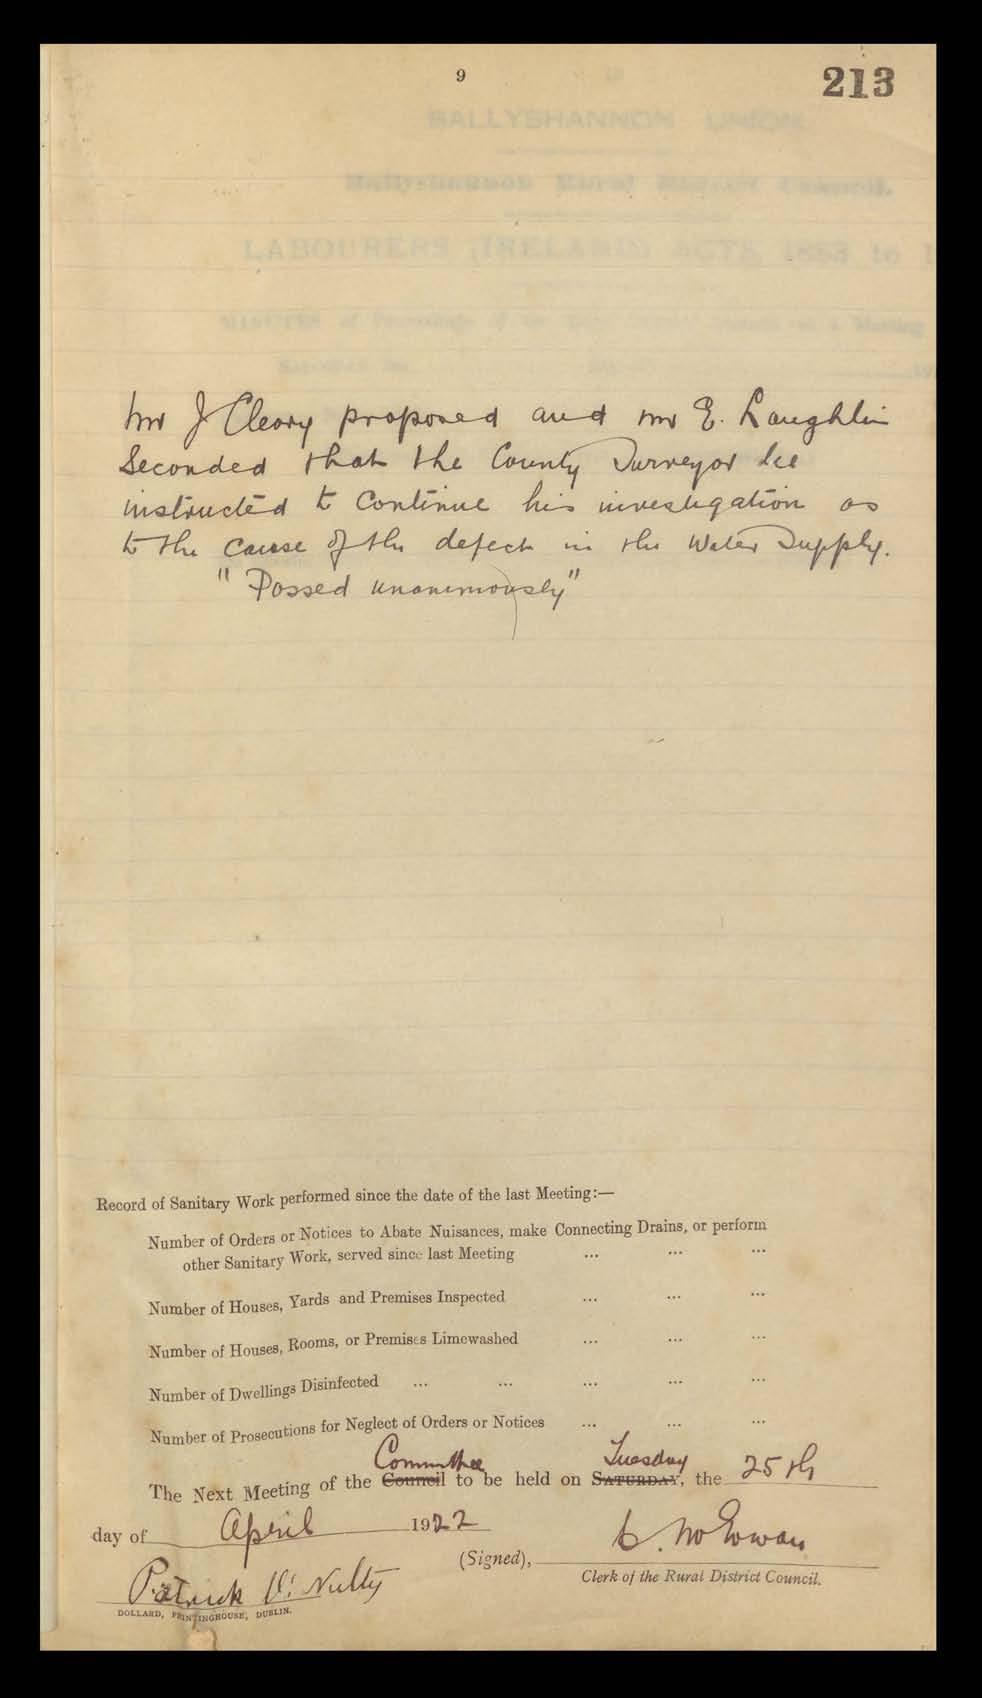 9
213
BALLYSHANNON UNION
Ballyshannon Rural District Council.
LABOURERS (IRELAND) ACTS, 1883 to 1
MINUTES of Proceedings of the Council at a Meeting
Mr J Cleary proposed and Mr E. Laughlin
Seconded that the County Surveyor be
instructed to Continue his investigation as
to the Cause of the defect in the Water Supply.
"Passed unanimously"
Record of Sanitary Work performed since the date of the last Meeting:—
Number of Orders or Notices to Abate Nuisances, make Connecting Drains, or perform
other Sanitary Work, served since last Meeting ... ... ...
Number of Houses, Yards and Premises Inspected ... ... ...
Number of Houses, Rooms, or Premises Limewashed ... ... ...
Number of Dwellings Disinfected ... ... ... ... ...
Number of Prosecutions for Neglect of Orders or Notices ... ... ...
Committee Tuesday
The Next Meeting of the Council to be held on SATURDAY, the 25th
day of April 1922
(Signed), C. McGowan
Clerk of the Rural District Council.
Patrick Mc Nulty
DOLLARD, PRINTINGHOUSE, DUBLIN.